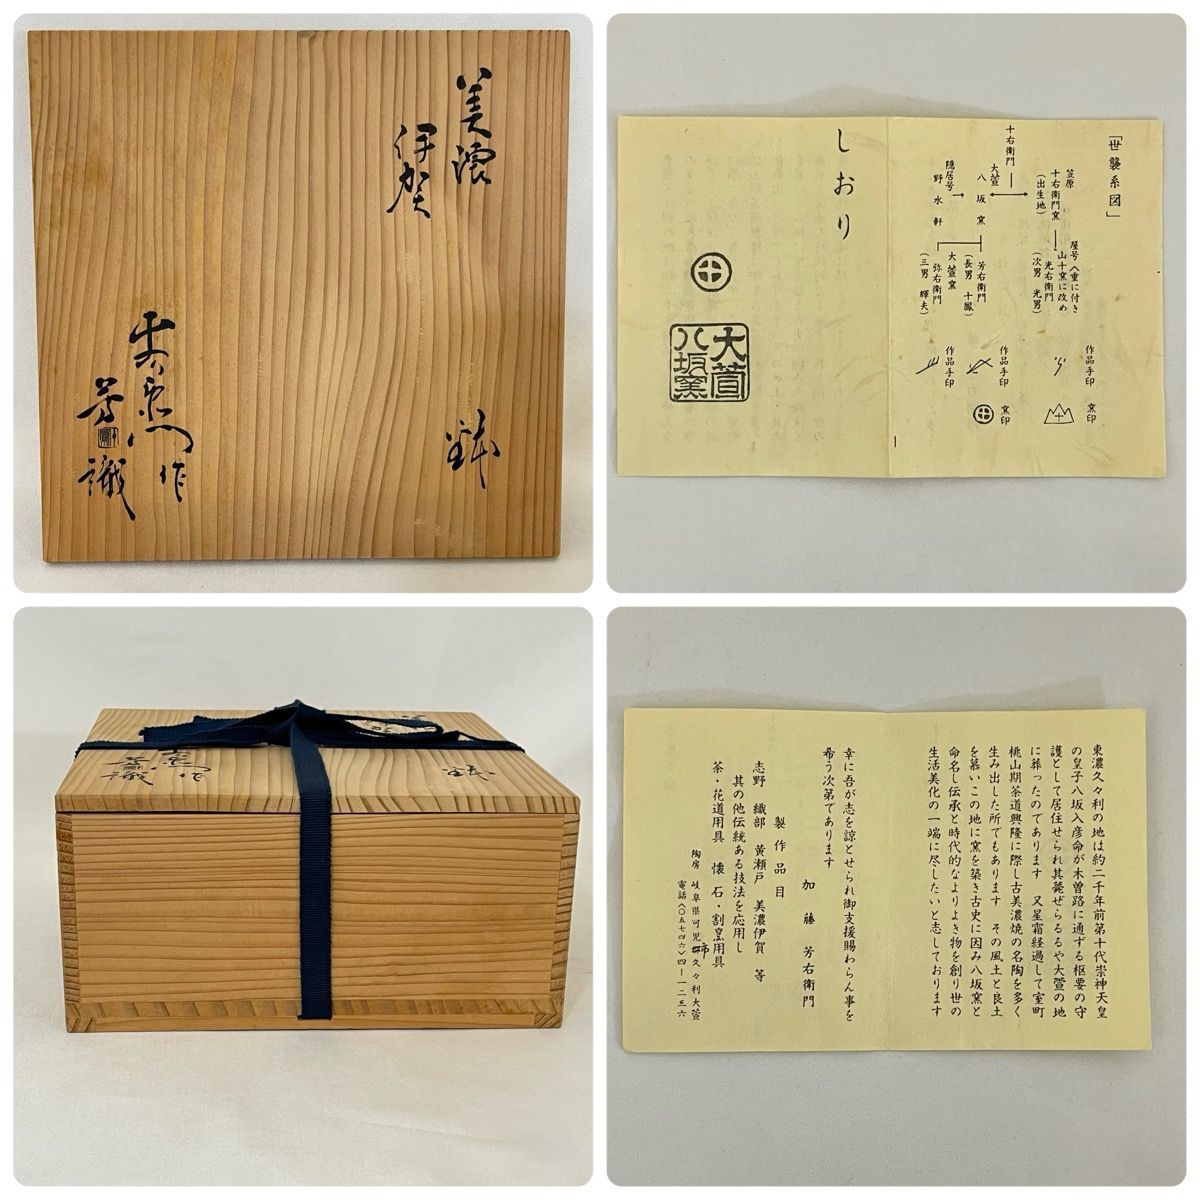 美濃
伊賀
鉢
作
芳
識
「世襲系図」
笠原
十右衛門窯
(出生地)
屋号八重に付き
山十窯に改め
光右衛門
(次男 光男)
十右衛門
大萱
八坂窯
隠居号
野水軒
芳右衛門
(長男 十鳳)
大萱窯
弥右衛門
(三男 輝夫)
作品手印
窯印
作品手印
窯印
作品手印
しおり
大萱
八坂窯
鉢
作
識
東濃久々利の地は約二千年前第十代崇神天皇
の皇子八坂入彦命が木曽路に通ずる枢要の守
護として居住せられ其薨ぜらるるや大萱の地
に葬ったのであります 又星霜経過して室町
桃山期茶道興隆に際し古美濃焼の名陶を多く
生み出した所でもあります その風土と良土
を慕いこの地に窯を築き古史に因み八坂窯と
命名し伝承と時代的なよりよき物を創り世の
生活美化の一端に尽したいと志しております
幸に吾が志を諒とせられ御支援賜わらん事を
希う次第であります
加藤 芳右衛門
製作品目
志野 織部 黄瀬戸 美濃伊賀 等
其の他伝統ある技法を応用し
茶・花道用具 懐石・割烹用具
陶房 岐阜県可児市久々利大萱
電話(〇五七四六)四ー一二三六